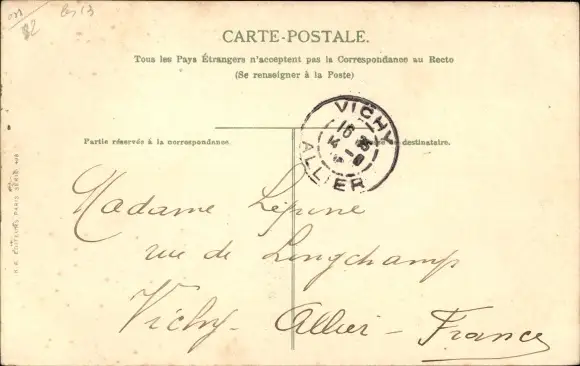 CARTE-POSTALE.
Tous les Pays Étrangers n'acceptent pas la Correspondance au Recto
(Se renseigner à la Poste)
Partie réservée à la correspondance.
destinataire.
VICHY
ALLIER
Madame Lépine
rue de Longchamp
Vichy - Allier - France